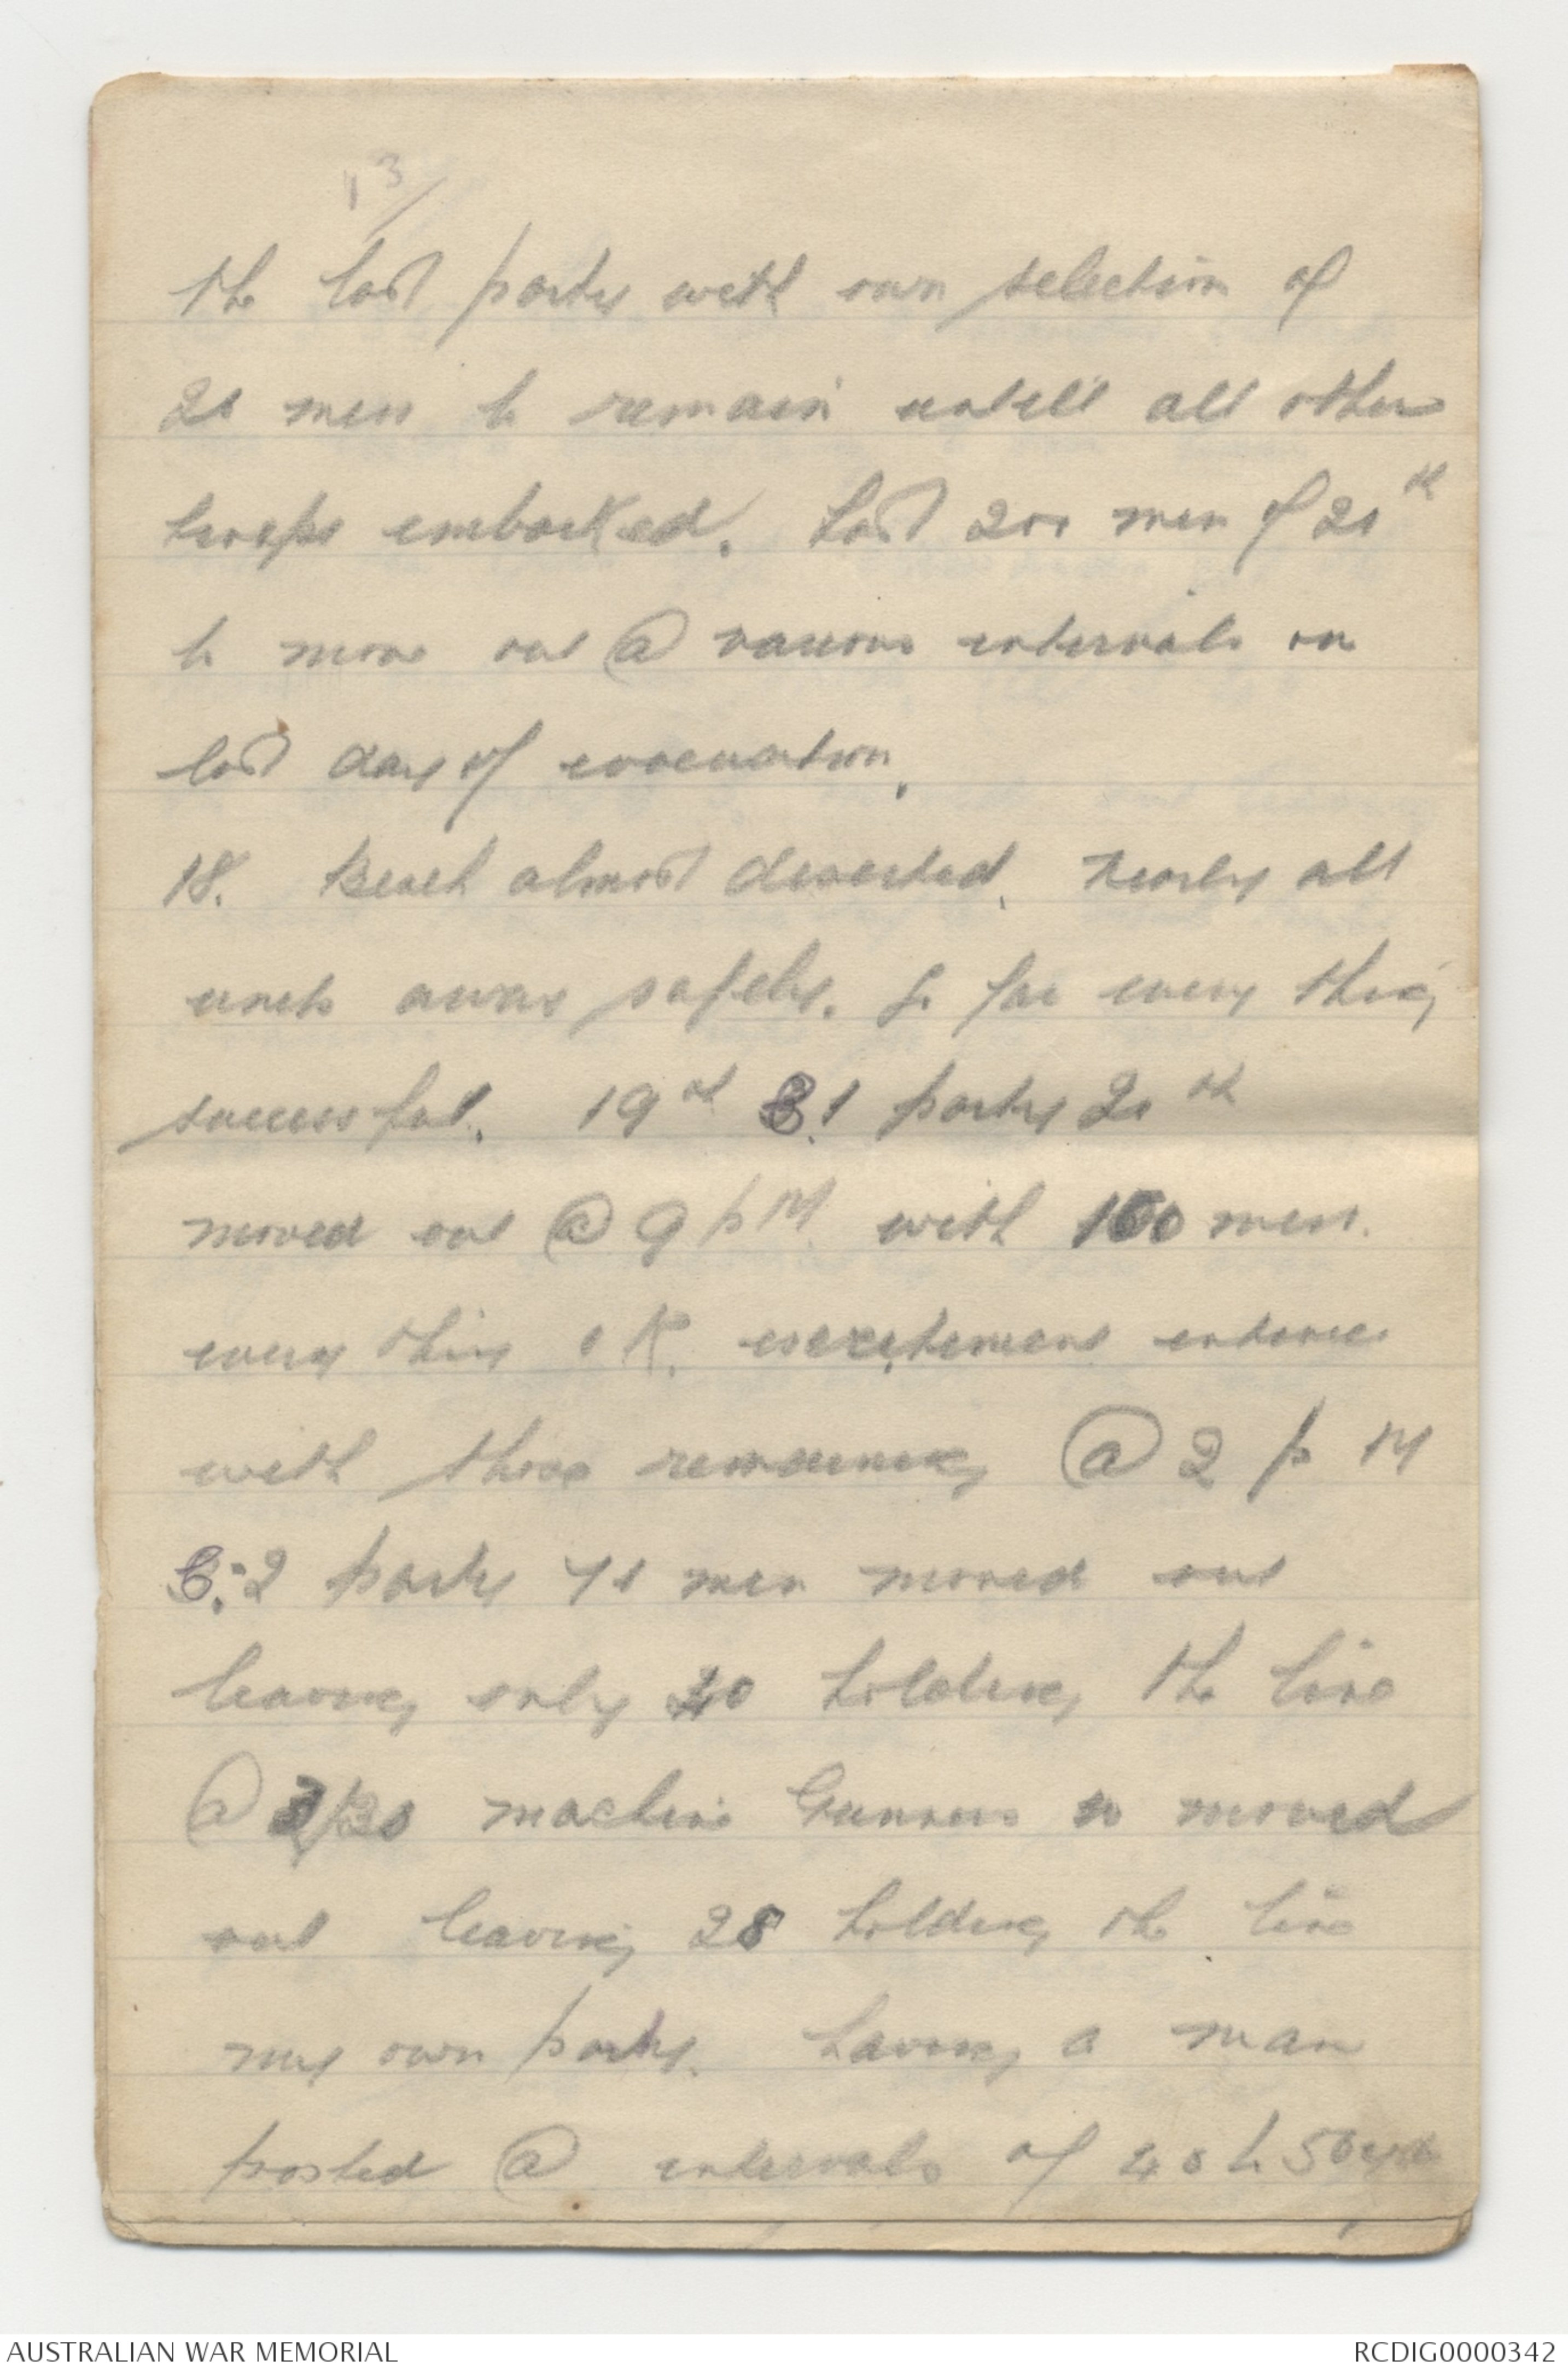 13/
the last party with own selection of
20 men to remain untill all other
troops embarked. Last 200 men of 20th
to move out @ various intervals on
last day of evacuation.
18. Beach almost deserted. Nearly all
units away safely. So far every thing
successful. 19th 1 party 20th
moved out @ 9 pM. with 100 men.
every thing o K. excitement intence
with those remaining @ 2 p M
2 party 70 men moved out
leaving only 40 holding the line
@ machine Gunners moved
out leaving 28 holding the line
my own party. having a man
posted @ intervals of 40 to 50 yds
AUSTRALIAN WAR MEMORIAL
RCDIG0000342